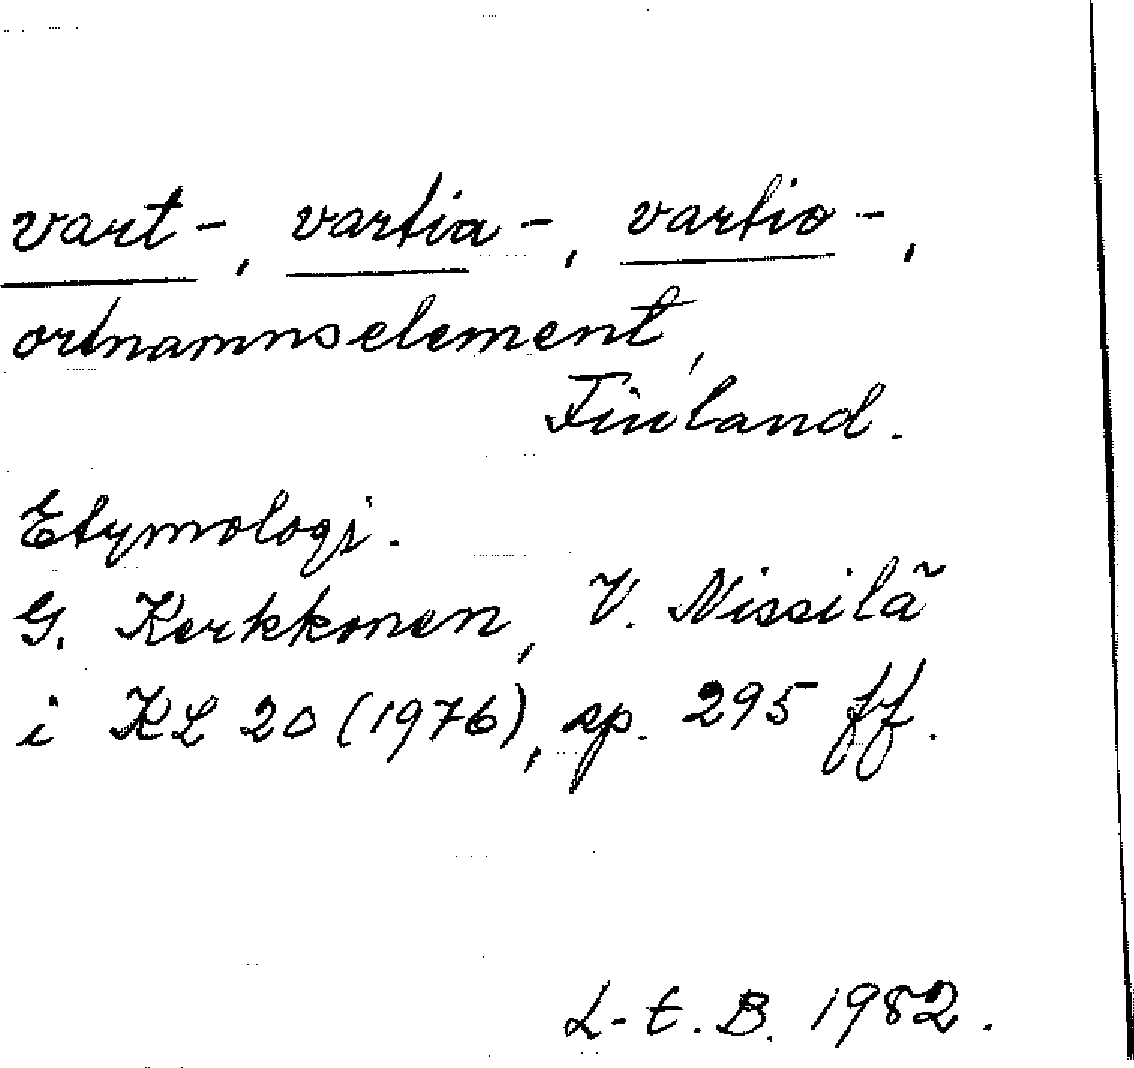 vart-, vartia-, vartio-,
ortnamnselement,
Finland.
Etymologi.
G. Kerkkonen, V. Nissilä
i KL 20 (1976), sp. 295 ff.
L-t. B. 1982.